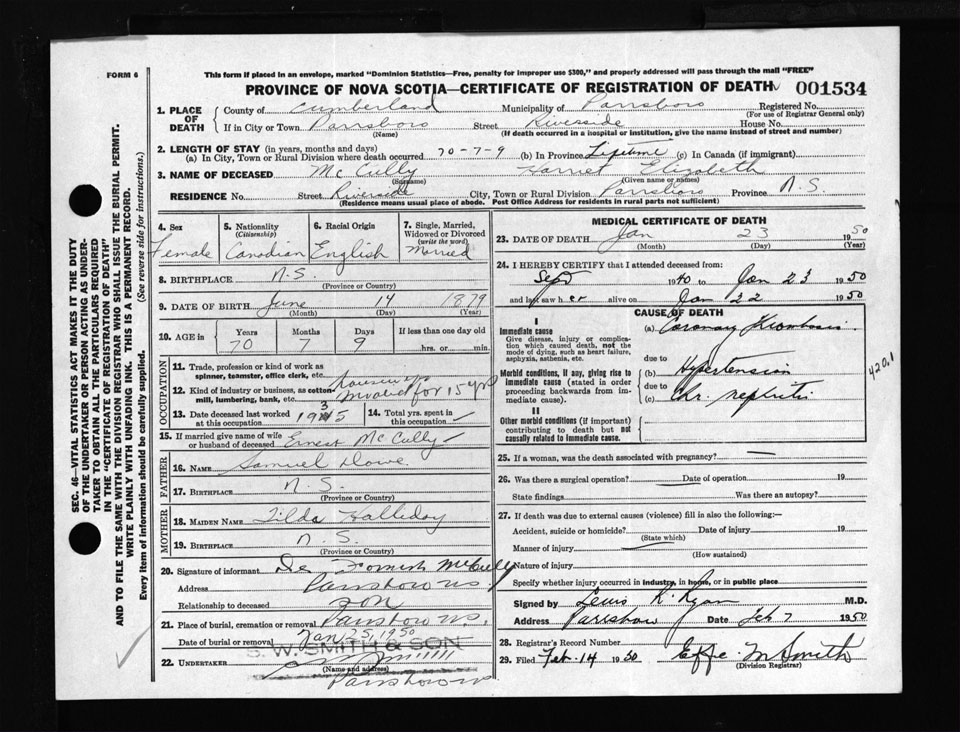 FORM 6
This form if placed in an envelope, marked "Dominion Statistics—Free, penalty for improper use $300," and properly addressed will pass through the mail "FREE"
PROVINCE OF NOVA SCOTIA—CERTIFICATE OF REGISTRATION OF DEATH 001534
1. PLACE OF DEATH
County of Cumberland Municipality of Parrsboro Registered No.
(For use of Registrar General only)
If in City or Town Parrsboro Street Riverside House No.
(Name) (If death occurred in a hospital or institution, give the name instead of street and number)
2. LENGTH OF STAY (in years, months and days)
(a) In City, Town or Rural Division where death occurred 70-7-9 (b) In Province Lifetime (c) In Canada (if immigrant)
3. NAME OF DECEASED McCully Harriet Elizabeth
(Surname) (Given name or names)
RESIDENCE No. Street Riverside City, Town or Rural Division Parrsboro Province N.S.
(Residence means usual place of abode. Post Office Address for residents in rural parts not sufficient)
4. Sex
Female
5. Nationality
(Citizenship)
Canadian
6. Racial Origin
English
7. Single, Married, Widowed or Divorced
(write the word)
Married
8. BIRTHPLACE N.S.
(Province or Country)
9. DATE OF BIRTH June 14 1879
(Month) (Day) (Year)
10. AGE in
Years Months Days If less than one day old
70 7 9 hrs. or min.
OCCUPATION
11. Trade, profession or kind of work as spinner, teamster, office clerk, etc. housewife
12. Kind of industry or business, as cotton mill, lumbering, bank, etc. Invalid for 15 yrs
13. Date deceased last worked at this occupation 1935
14. Total yrs. spent in this occupation
15. If married give name of wife or husband of deceased Ernest McCully
FATHER
16. NAME Samuel Dowe
17. BIRTHPLACE N.S.
(Province or Country)
MOTHER
18. MAIDEN NAME Tilda Halliday
19. BIRTHPLACE N.S.
(Province or Country)
20. Signature of informant McCully
Address Parrsboro N.S.
Relationship to deceased Son
21. Place of burial, cremation or removal Parrsboro N.S.
Date of burial or removal Jan 25, 1950
S. W. SMITH & SON
22. UNDERTAKER
(Name and address)
Parrsboro NS
MEDICAL CERTIFICATE OF DEATH
23. DATE OF DEATH Jan 23 1950
(Month) (Day) (Year)
24. I HEREBY CERTIFY that I attended deceased from:
Sept 1940 to Jan 23 1950
and last saw her alive on Jan 22 1950
CAUSE OF DEATH
I
Immediate cause (a) Coronary Thrombosis
Give disease, injury or complication which caused death, not the mode of dying, such as heart failure, asphyxia, asthenia, etc.
due to
Morbid conditions, if any, giving rise to immediate cause (stated in order proceeding backwards from immediate cause)
(b) Hypertension
due to
(c) Chr. nephritis
420.1
II
Other morbid conditions (if important) contributing to death but not causally related to immediate cause.
25. If a woman, was the death associated with pregnancy? —
26. Was there a surgical operation? Date of operation 19
State findings Was there an autopsy?
27. If death was due to external causes (violence) fill in also the following:—
Accident, suicide or homicide? Date of injury 19
(State which)
Manner of injury
(How sustained)
Nature of injury
Specify whether injury occurred in industry, in home, or in public place
Signed by Lewis R. Ryan M.D.
Address Parrsboro Date Feb 7 1950
28. Registrar's Record Number
29. Filed Feb. 14 1950 Effie M Smith
(Division Registrar)
SEC. 46—VITAL STATISTICS ACT MAKES IT THE DUTY
OF THE UNDERTAKER OR PERSON ACTING AS UNDER-
TAKER TO OBTAIN ALL THE PARTICULARS REQUIRED
IN THE "CERTIFICATE OF REGISTRATION OF DEATH"
AND TO FILE THE SAME WITH THE DIVISION REGISTRAR WHO SHALL ISSUE THE BURIAL PERMIT.
WRITE PLAINLY WITH UNFADING INK. THIS IS A PERMANENT RECORD.
Every item of information should be carefully supplied. (See reverse side for instructions.)